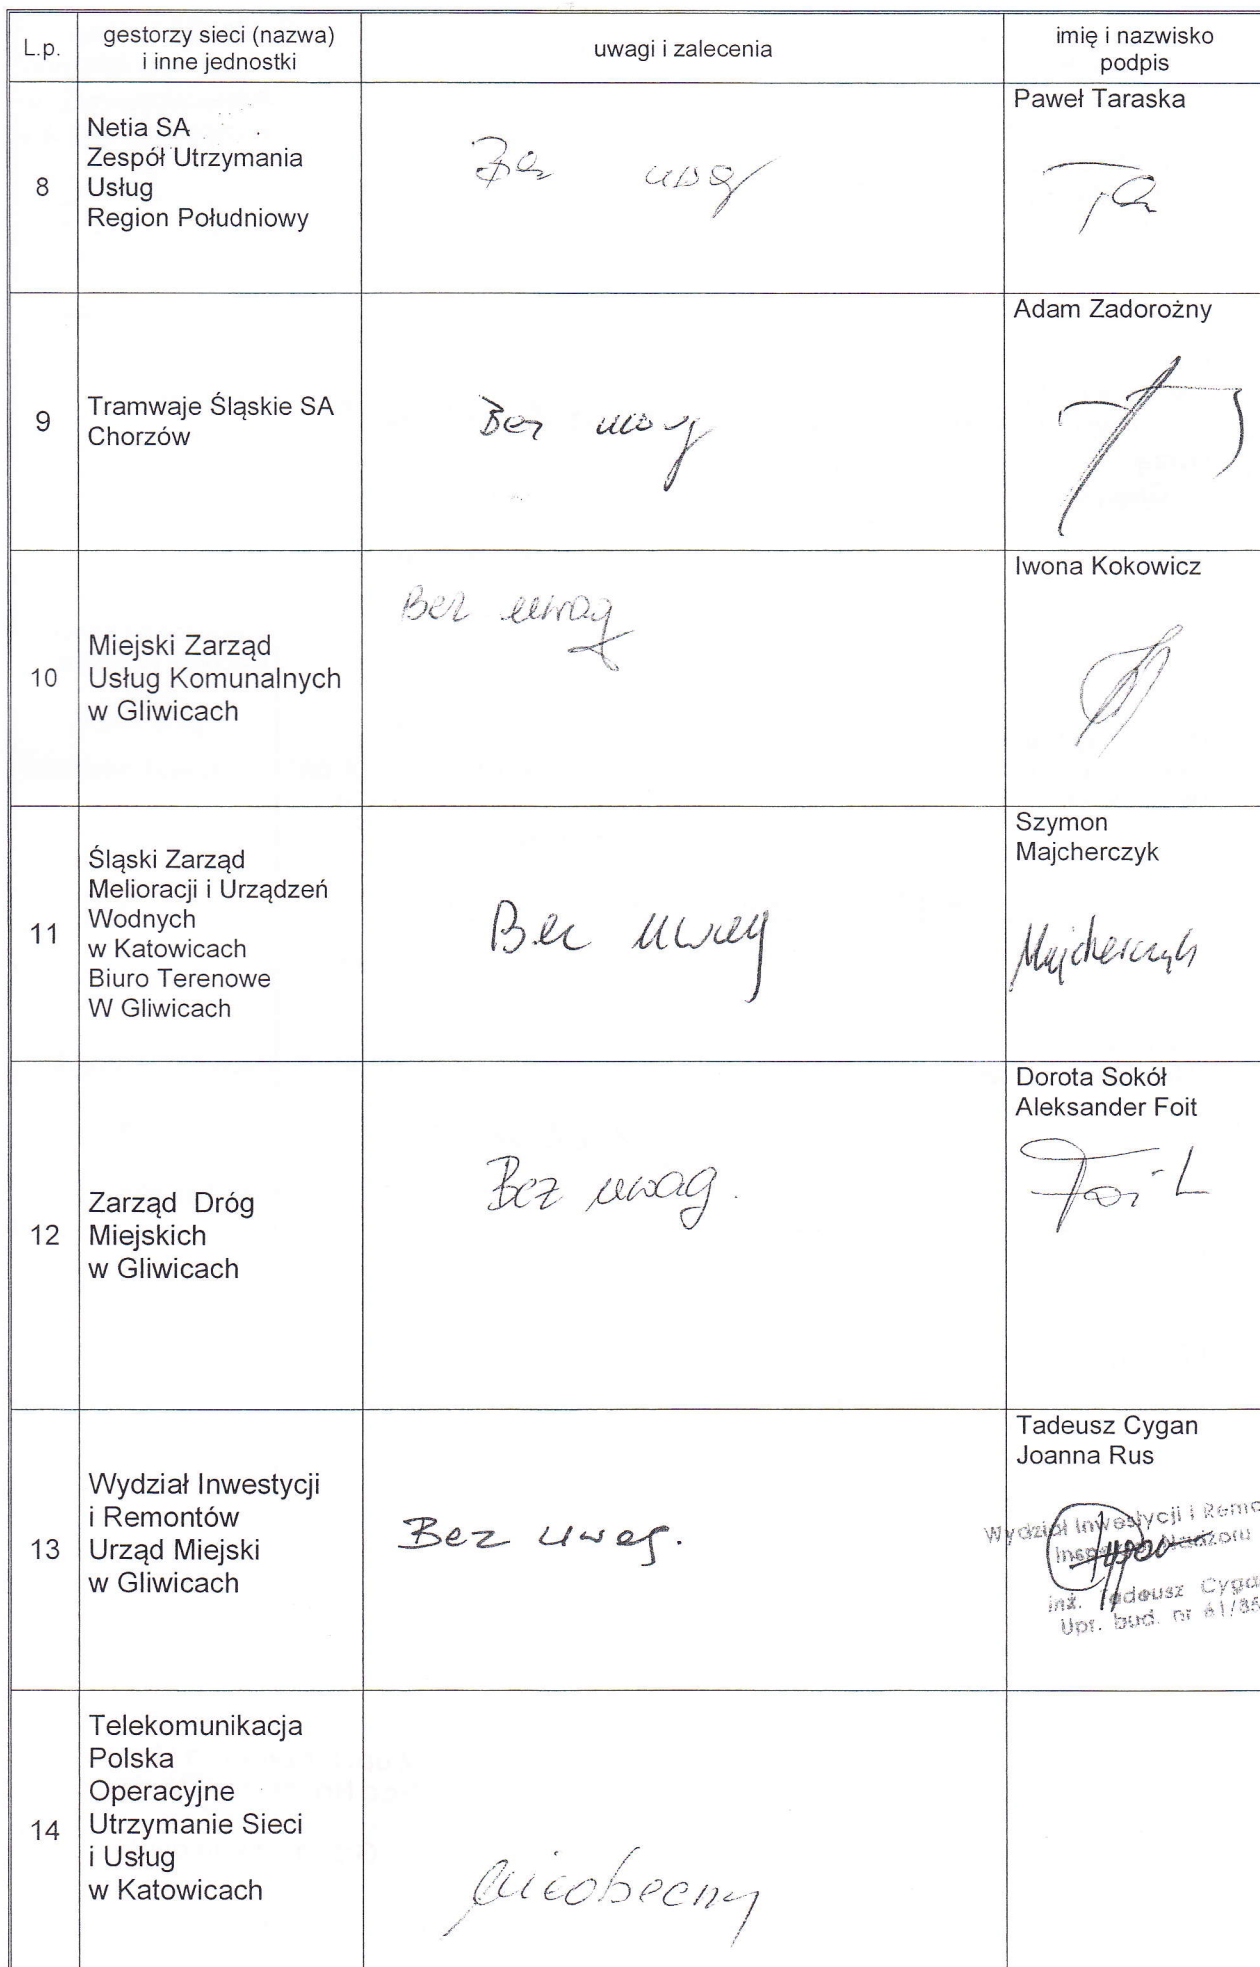 L.p.
gestorzy sieci (nazwa)
i inne jednostki
uwagi i zalecenia
imię i nazwisko
podpis
8
Netia SA
Zespół Utrzymania
Usług
Region Południowy
Bez uwag
Paweł Taraska
9
Tramwaje Śląskie SA
Chorzów
Bez uwag
Adam Zadorożny
10
Miejski Zarząd
Usług Komunalnych
w Gliwicach
Bez uwag
Iwona Kokowicz
11
Śląski Zarząd
Melioracji i Urządzeń
Wodnych
w Katowicach
Biuro Terenowe
W Gliwicach
Bez uwag
Szymon
Majcherczyk
Majcherczyk
12
Zarząd Dróg
Miejskich
w Gliwicach
Bez uwag.
Dorota Sokół
Aleksander Foit
Foit
13
Wydział Inwestycji
i Remontów
Urząd Miejski
w Gliwicach
Bez uwag.
Tadeusz Cygan
Joanna Rus
Wydział Inwestycji i Remo
Inspektor Nadzoru
inż. Tadeusz Cyga
Upr. bud. nr 61/85
14
Telekomunikacja
Polska
Operacyjne
Utrzymanie Sieci
i Usług
w Katowicach
nieobecny